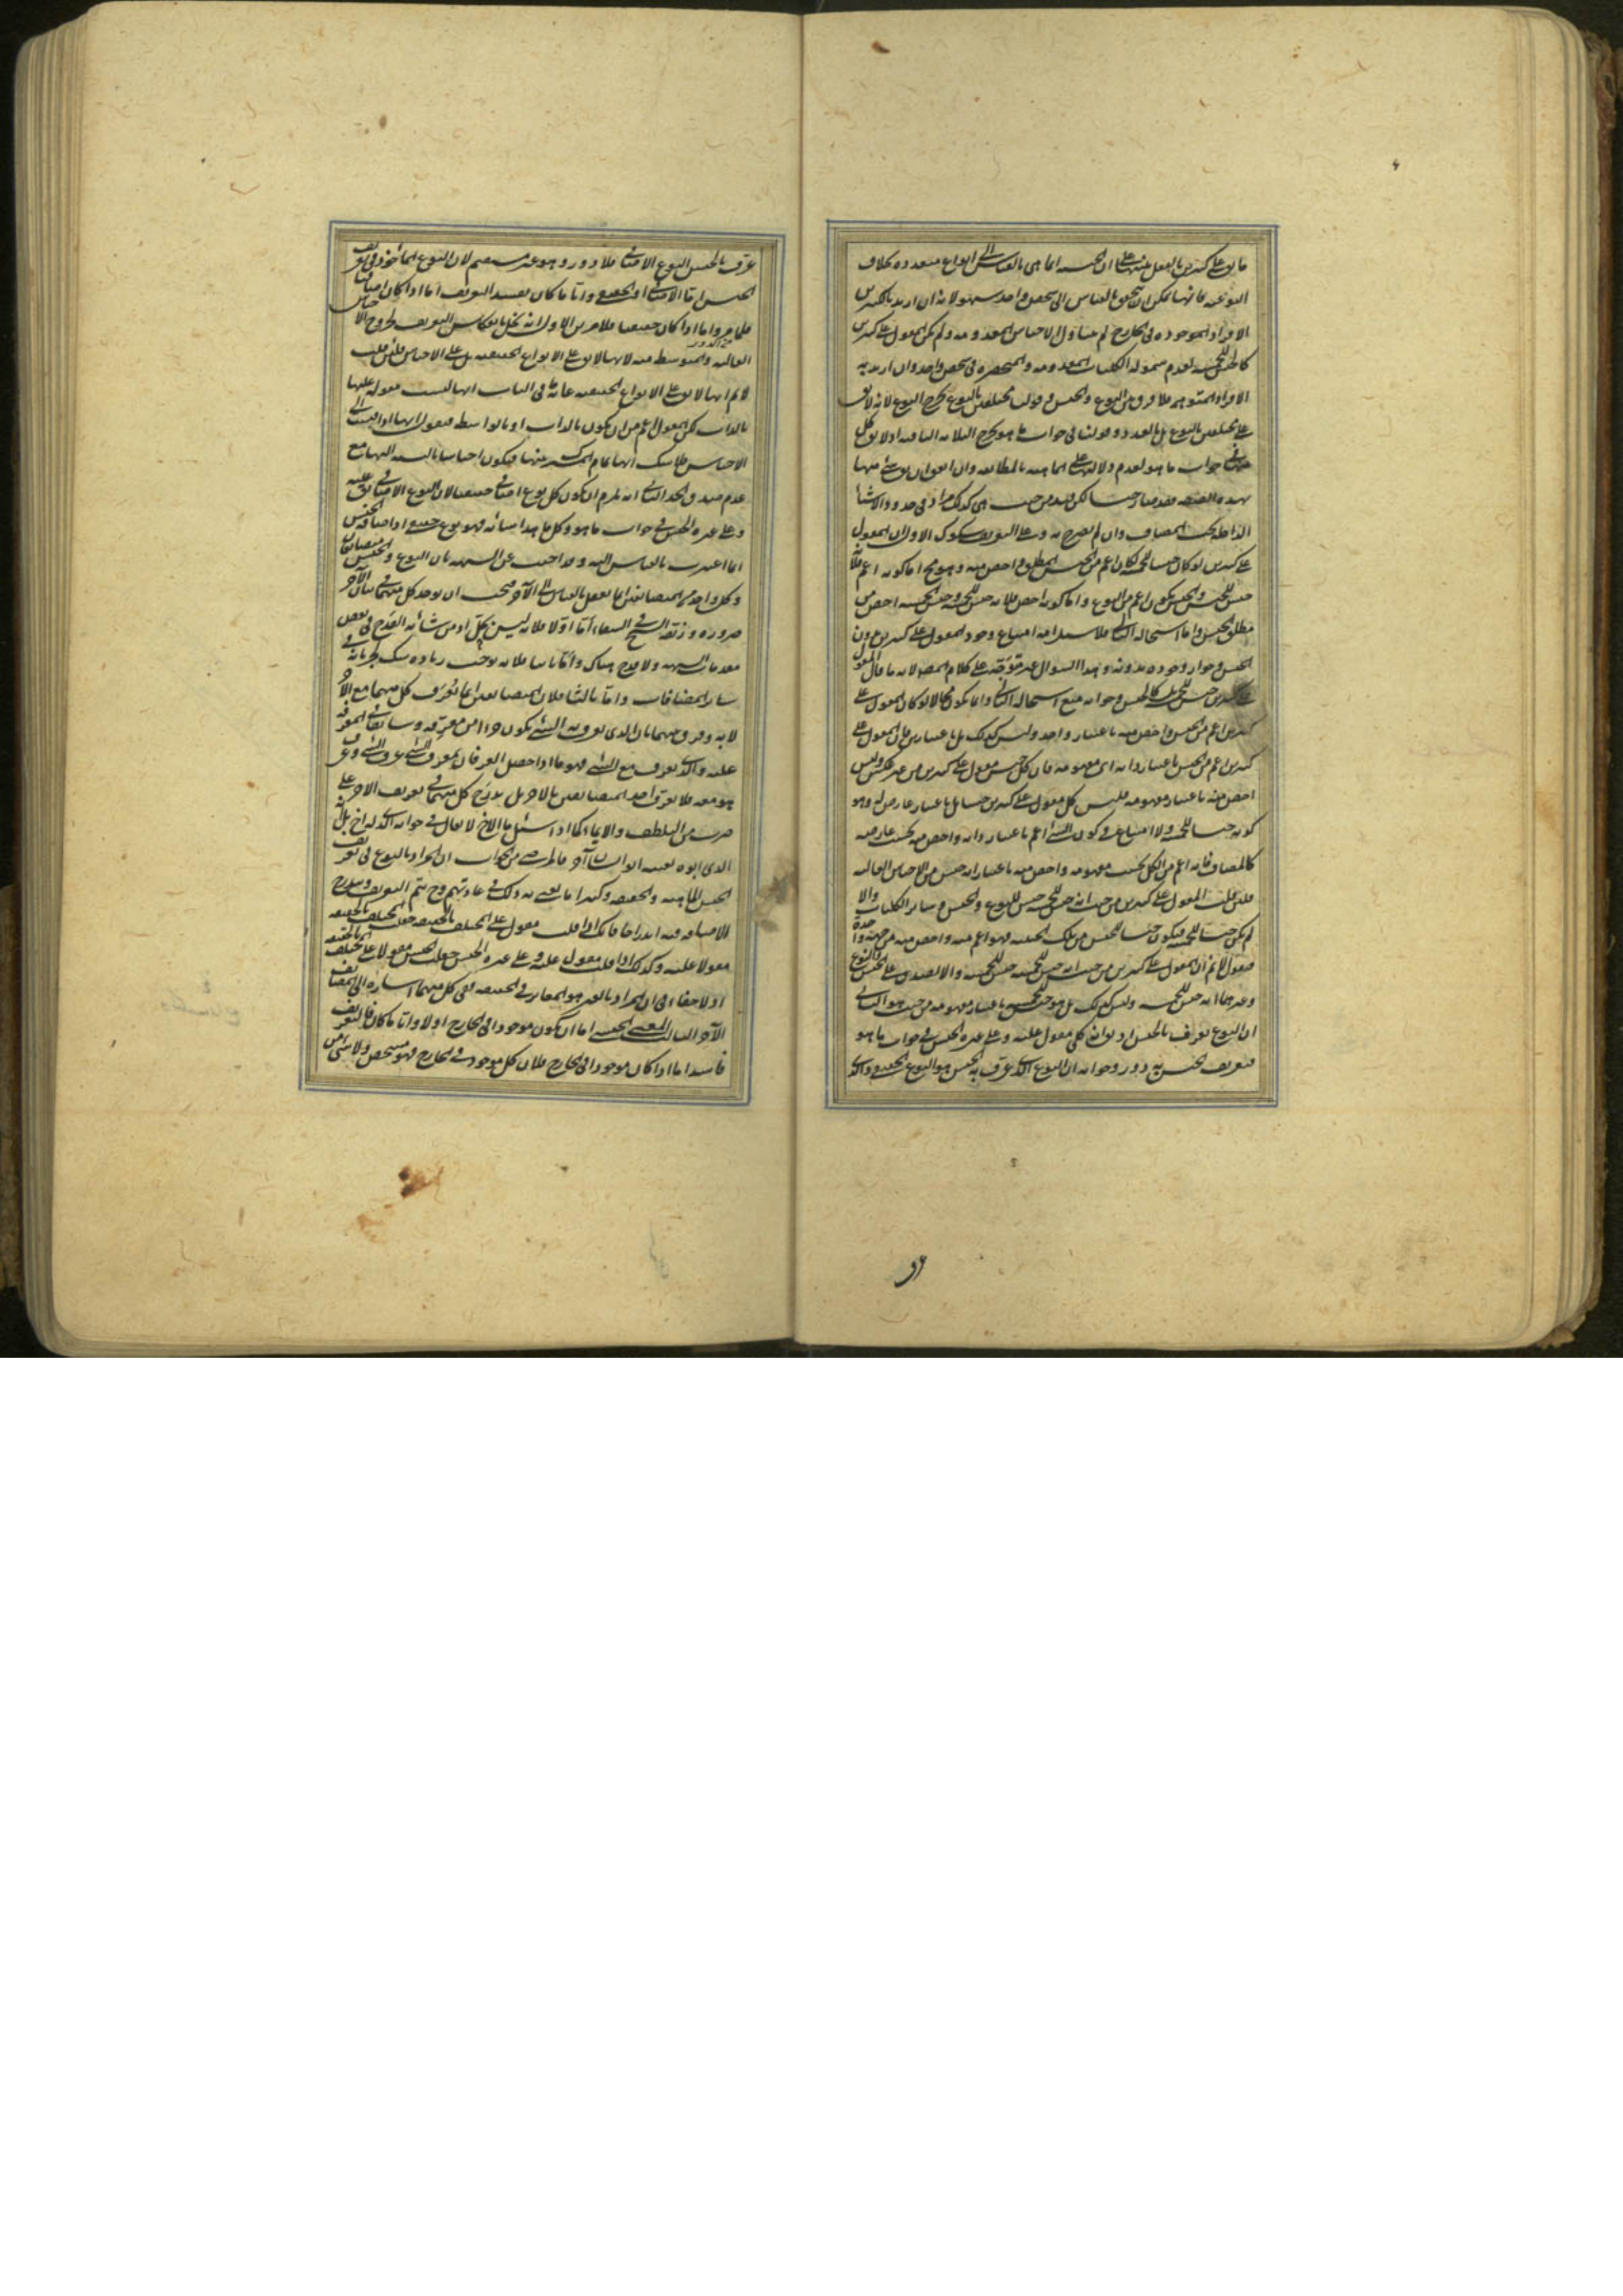 ما يق على كثيرين بالفعل على ان الجنسية انما هى بالقياس الى انواع متعددة بخلاف
النوعية فانها يمكن ان تتحقق بالقياس الى شخص واحد سهو لانه ان اريد بالكثيرين
الافراد الموجودة فى الخارج لم يتناول الاجناس المعدومة ولم يكن المقول على كثيرين
كالجنس للخمسة لعدم شموله الكليات المعدومة والمنحصرة فى شخص واحد وان اريد به
الافراد المتوهمة فلا فرق بين النوع والجنس وقولنا مختلفين بالنوع يخرج النوع لانه لا يق
على مختلفين بالنوع بل بالعدد وقولنا فى جواب ما هو يخرج الثلاثة الباقية اذ لا يق كل
منها فى جواب ما هو لعدم دلالتها على الماهية بالمطابقة
بهذه الصفة
الداخلة تحت المضاف وان لم يصرح به وعلى التعريف شكوك الاول ان المقول
على كثيرين لو كان جنسا للخمسة لكان اعم من الجنس المطلق واخص منه وهو مح اما كونه اعم فلانه
جنس للخمسة والجنس يكون اعم من النوع واما كونه اخص فلانه جنس للخمسة وجنس الخمسة اخص من
مطلق الجنس واما استحالة التالى فلاستلزامه امتناع وجود المقول على كثيرين بدون
الجنس وجواز وجوده بدونه وهذا السؤال غير متوجه على كلام المص لانه ما قال المقول
على كثيرين جنس للخمسة بل كالجنس وجوابه منع استحالة التالى وانما يكون محالا لو كان المقول على
كثيرين اعم من الجنس واخص منه باعتبار واحد وليس كذلك بل باعتبارين فان المقول على
كثيرين اعم من الجنس باعتبار ذاته اى مفهومه فان كل جنس مقول على كثيرين من غير عكس وليس
اخص منه باعتبار مفهومه فليس كل مقول على كثيرين جنسا بل باعتبار عارض له وهو
كونه جنسا للخمسة ولا امتناع فى كون الشئ اعم باعتبار ذاته واخص منه بحسب عارضه
كالمضاف فانه اعم من الكل بحسب مفهومه واخص منه باعتبار انه جنس من الاجناس العالية
فان قلت المقول على كثيرين من حيث انه جنس للخمسة جنس للنوع والجنس وسائر الكليات والا
لم يكن جنسا للخمسة فيكون جنسا للجنس من تلك الحيثية فهو اعم منه واخص منه من جهة واحدة
فنقول لا نم ان المقول على كثيرين من حيث انه جنس للخمسة جنس للخمسة والا لصدق على الجنس والنوع
وغيرهما انه جنس للخمسة وليس كذلك بل هو جنس للخمسة باعتبار مفهومه من حيث هو الثانى
ان النوع يعرف بالجنس اذ يق انه كلى مقول عليه وعلى غيره الجنس فى جواب ما هو
فتعريف الجنس به دور وجوابه ان النوع الذى عرف به الجنس هو النوع الحقيقى والذى
عرف بالجنس النوع الاضافى فلا دور وهو غير مستقيم لان النوع المأخوذ فى تعريف
الجنس اما الاضافى او الحقيقى وايا ما كان يفسد التعريف اما اذا كان اضافيا
فلما مر واما اذا كان حقيقيا فلامرين الاول انه يخل بانعكاس التعريف لخروج الاجناس
العالية والمتوسطة منه لانها لا يق على الانواع الحقيقية بل على الاجناس فان قلت
لا نم انها لا يق على الانواع الحقيقية غاية ما فى الباب انها ليست مقولة عليها
بالذات لكن المقول اعم من ان يكون بالذات او بالواسطة فنقول انها اذا نسبت الى
الاجناس فلا شك انها تمام المشترك بينها فيكون اجناسا بالنسبة اليها مع
عدم صدق الحد الثانى انه يلزم ان يكون كل نوع اضافى حقيقيا لان النوع الاضافى يق عليه
وعلى غيره الجنس فى جواب ما هو وكل ما هذا شانه فهو نوع حقيقى اذ اضافة الجنس
انما اعتبرت بالقياس اليه وقد اجيب عن الشبهة بان النوع والجنس متضايفان
وكل واحد من المتضايفين انما يعقل بالقياس الى الآخر فيجب ان يؤخذ كل منهما فى بيان الآخر
ضرورة وزيفه الشيخ فى الشفاء اما اولا فلانه ليس بحل اذ من شانه القدح فى بعض
مقدمات الشبهة ولا قدح هناك واما ثانيا فلانه يوجب زيادة شك لجريانه فى
سائر المضافات واما ثالثا فلان المتضايفين انما يعرف كل منهما مع الآخر
لا به وفرق بينهما بان الذى يعرف به الشئ يكون جزءا من معرفه وسابقا فى المعرفة
عليه والذى يعرف مع الشئ فهو ما اذا حصل العرفان بمعرف الشئ عرف الشئ وعرف
هو معه فلا يعرف احد المتضايفين بالآخر بل يدرج كل منهما فى تعريف الآخر على
ضرب من التلطف والايماء كما اذا سئل ما الاخ لا يقال فى جوابه الذى له اخ بل انه
الذى ابوه بعينه ابو انسان آخر فالمرضى من الجواب ان المراد بالنوع فى تعريف
الجنس الماهية والحقيقة وكثيرا ما يعنى به ذلك فى عادتهم وح يتم التعريف ويندرج
الاضافة فيه اندراجا فانك اذا قلت مقول على المختلف بالحقيقة جعلت المختلف بالحقيقة
مقولا عليه وكذلك اذا قلت مقول عليه وعلى غيره الجنس جعلت الجنس مقولا على المختلف بالحقيقة
اذ لا خفاء فى ان المراد بالغير هو المغاير فى الحقيقة ففى كل منهما اشارة الى المضايف
الآخر الثالث المعنى الجنسى اما ان يكون موجودا فى الخارج او لا وايا ما كان فالتعريف
فاسد اما اذا كان موجودا فى الخارج فلان كل موجود فى الخارج فهو مشخص ولا شئ من